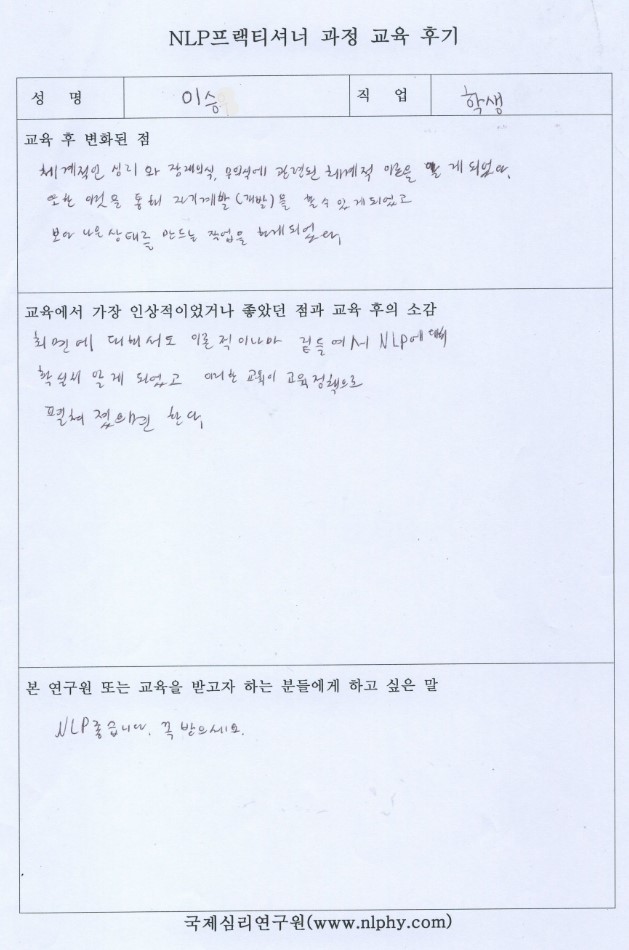 NLP프랙티셔너 과정 교육 후기
성 명 이승 직 업 학생
교육 후 변화된 점
체계적인 심리와 잠재의식, 무의식에 관련된 체계적 이론을 알게 되었다.
또한 이것을 통해 자기계발(개발)을 할 수 있게되었고
보다 나은 상태를 만드는 작업을 하게되었다.
교육에서 가장 인상적이었거나 좋았던 점과 교육 후의 소감
최면에 대해서도 이론적이나마 곁들여서 NLP에 대해
확실히 알게 되었고 이러한 교육이 교육정책으로
펼쳐 졌으면 한다.
본 연구원 또는 교육을 받고자 하는 분들에게 하고 싶은 말
NLP좋습니다. 꼭 받으세요.
국제심리연구원(www.nlphy.com)